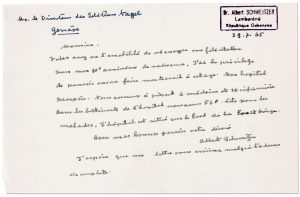 Mr. le Directeur des Editions Nagel
Genève
Dr. Albert SCHWEITZER
Lambaréné
République Gabonaise
29.7.65
Monsieur.
Vous avez eu l'amabilité de m'envoyer vos félicitations
pour mon 90e anniversaire de naissance. J'ai le privilège
de pouvoir encore faire mon travail à cet âge. Mon hôpital
Nous sommes à présent 6 médecins et 16 infirmières
Dans les bâtiments de l'hôpital nous avons 560 lits pour les
malades. L'hôpital est situé sur le bord de la
Avec mes bonnes pensées votre dévoué
Albert Schweitzer
J'espère que ma lettre vous arrivera malgré l'adresse
incomplète.